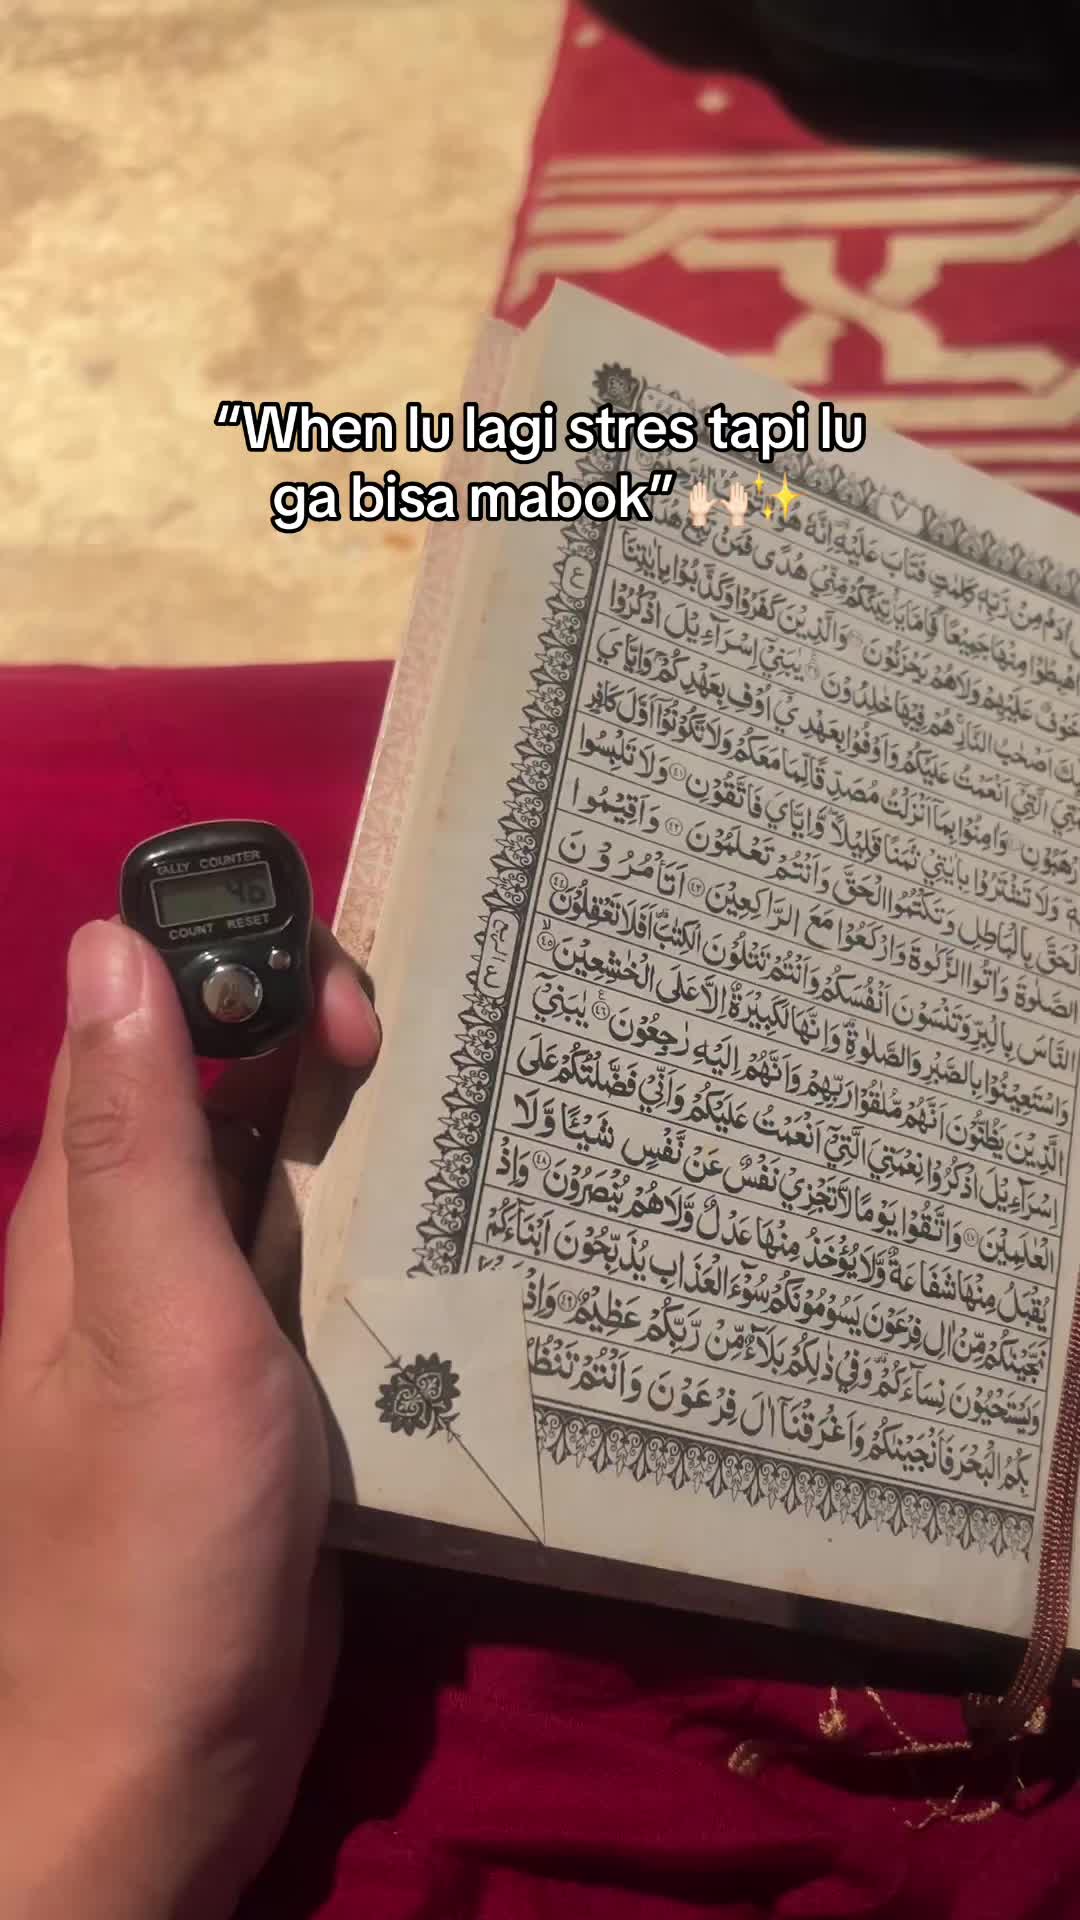 “When lu lagi stres tapi lu
ga bisa mabok” 🙌🏻✨
TALLY COUNTER
40
COUNT RESET
٧
اٰدَمُ مِنْ رَّبِّهٖ كَلِمٰتٍ فَتَابَ عَلَيْهِ اِنَّهٗ هُوَ
اهْبِطُوْا مِنْهَا جَمِيْعًا فَاِمَّا يَأْتِيَنَّكُمْ مِّنِّيْ هُدًى فَمَنْ تَبِعَ هُدَايَ
خَوْفٌ عَلَيْهِمْ وَلَاهُمْ يَحْزَنُوْنَ ۝ وَالَّذِيْنَ كَفَرُوْا وَكَذَّبُوْا بِاٰيٰتِنَا
اَصْحٰبُ النَّارِ هُمْ فِيْهَا خٰلِدُوْنَ ۝ يٰبَنِيْٓ اِسْرَآءِيْلَ اذْكُرُوْا
الَّتِيْٓ اَنْعَمْتُ عَلَيْكُمْ وَاَوْفُوْا بِعَهْدِيْٓ اُوْفِ بِعَهْدِكُمْ وَاِيَّايَ
وَاٰمِنُوْا بِمَآ اَنْزَلْتُ مُصَدِّقًا لِّمَا مَعَكُمْ وَلَا تَكُوْنُوْٓا اَوَّلَ كَافِرٍ
وَلَا تَشْتَرُوْا بِاٰيٰتِيْ ثَمَنًا قَلِيْلًا وَّاِيَّايَ فَاتَّقُوْنِ ۝٤١ وَلَا تَلْبِسُوا
الْحَقَّ بِالْبَاطِلِ وَتَكْتُمُوا الْحَقَّ وَاَنْتُمْ تَعْلَمُوْنَ ۝٤٢ وَاَقِيْمُوا
الصَّلٰوةَ وَاٰتُوا الزَّكٰوةَ وَارْكَعُوْا مَعَ الرَّاكِعِيْنَ ۝٤٣ اَتَأْمُرُوْنَ
النَّاسَ بِالْبِرِّ وَتَنْسَوْنَ اَنْفُسَكُمْ وَاَنْتُمْ تَتْلُوْنَ الْكِتٰبَ اَفَلَا تَعْقِلُوْنَ ۝٤٤
وَاسْتَعِيْنُوْا بِالصَّبْرِ وَالصَّلٰوةِ وَاِنَّهَا لَكَبِيْرَةٌ اِلَّا عَلَى الْخٰشِعِيْنَ ۝٤٥
الَّذِيْنَ يَظُنُّوْنَ اَنَّهُمْ مُّلٰقُوْا رَبِّهِمْ وَاَنَّهُمْ اِلَيْهِ رٰجِعُوْنَ ۝٤٦ يٰبَنِيْٓ
اِسْرَآءِيْلَ اذْكُرُوْا نِعْمَتِيَ الَّتِيْٓ اَنْعَمْتُ عَلَيْكُمْ وَاَنِّيْ فَضَّلْتُكُمْ عَلَى
الْعٰلَمِيْنَ ۝٤٧ وَاتَّقُوْا يَوْمًا لَّا تَجْزِيْ نَفْسٌ عَنْ نَّفْسٍ شَيْـًٔا وَّلَا
يُقْبَلُ مِنْهَا شَفَاعَةٌ وَّلَا يُؤْخَذُ مِنْهَا عَدْلٌ وَّلَا هُمْ يُنْصَرُوْنَ ۝٤٨ وَاِذْ
نَجَّيْنٰكُمْ مِّنْ اٰلِ فِرْعَوْنَ يَسُوْمُوْنَكُمْ سُوْٓءَ الْعَذَابِ يُذَبِّحُوْنَ اَبْنَآءَكُمْ
وَيَسْتَحْيُوْنَ نِسَآءَكُمْ وَفِيْ ذٰلِكُمْ بَلَآءٌ مِّنْ رَّبِّكُمْ عَظِيْمٌ ۝٤٩ وَاِذْ
بِكُمُ الْبَحْرَ فَاَنْجَيْنٰكُمْ وَاَغْرَقْنَآ اٰلَ فِرْعَوْنَ وَاَنْتُمْ تَنْظُرُ
ع
ع الربع